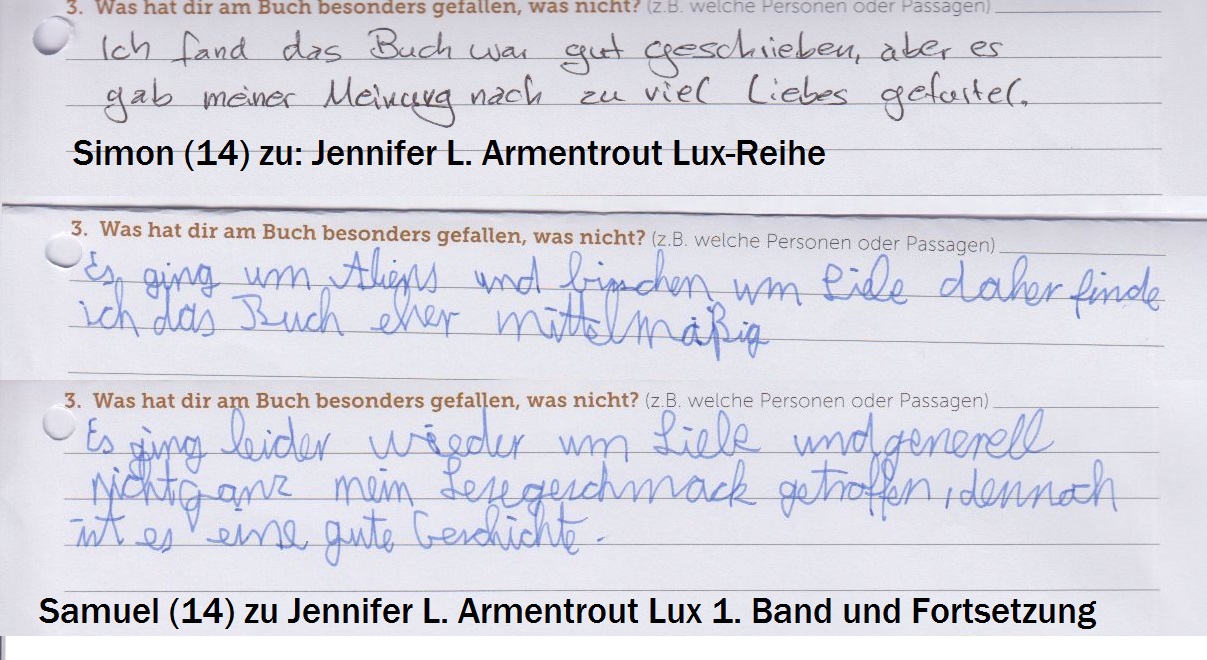 3. Was hat dir am Buch besonders gefallen, was nicht? (z.B. welche Personen oder Passagen)
Ich fand das Buch war gut geschrieben, aber es
gab meiner Meinung nach zu viel Liebes gefastel.
Simon (14) zu: Jennifer L. Armentrout Lux-Reihe
3. Was hat dir am Buch besonders gefallen, was nicht? (z.B. welche Personen oder Passagen)
Es ging um Aliens und bisschen um Liebe daher finde
ich das Buch eher mittelmäßig
3. Was hat dir am Buch besonders gefallen, was nicht? (z.B. welche Personen oder Passagen)
Es ging leider wieder um Liebe und generell
nicht ganz mein Lesegeschmack getroffen, dennoch
ist es eine gute Geschichte.
Samuel (14) zu Jennifer L. Armentrout Lux 1. Band und Fortsetzung